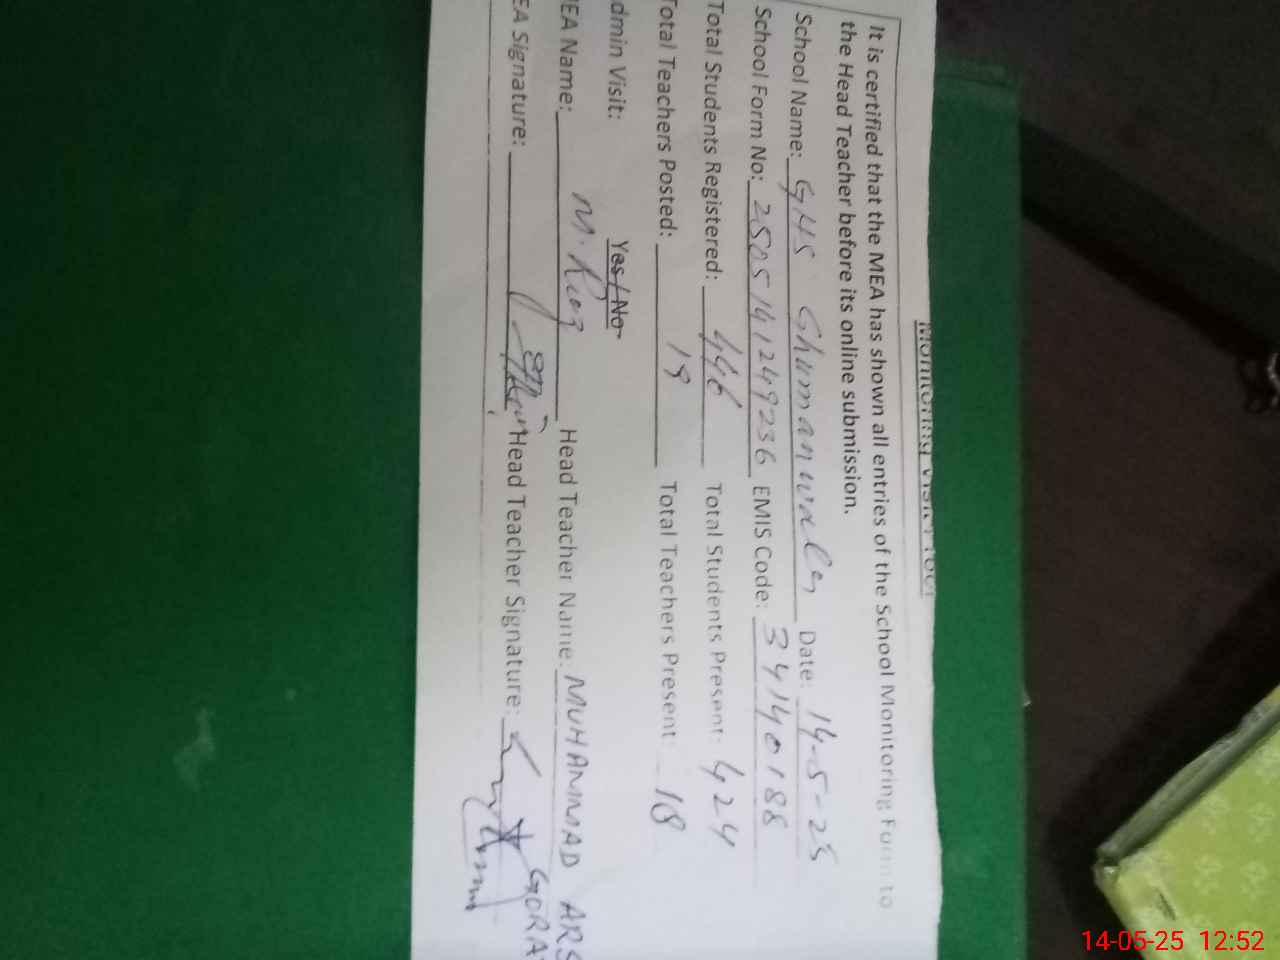 Monitoring Visit Proof
It is certified that the MEA has shown all entries of the School Monitoring Form to
the Head Teacher before its online submission.
School Name: GHS Ghumanwala Date: 14-5-25
School Form No: 2505141249236 EMIS Code: 34140188
Total Students Registered: 446 Total Students Present: 424
Total Teachers Posted: 19 Total Teachers Present: 18
dmin Visit: Yes / No
MEA Name: M. Riaz Head Teacher Name: MUHAMMAD ARS
GORA
EA Signature: Head Teacher Signature:
14-05-25 12:52